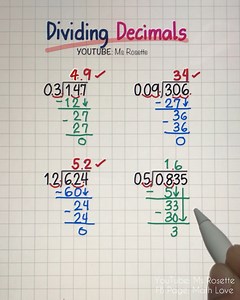 Dividing Decimals
YOUTUBE: Ms Rosette
4.9 ✓ 34 ✓
0.3 1.47 0.09 3.06.
-12 -27
-27 -36
27 36
0 0
5.2 ✓ 1.6
1.2 6.24 0.5 0.835
-60 - 5
-24 33
-24 -30
0 3
Youtube: Ms Rosette
Math Love